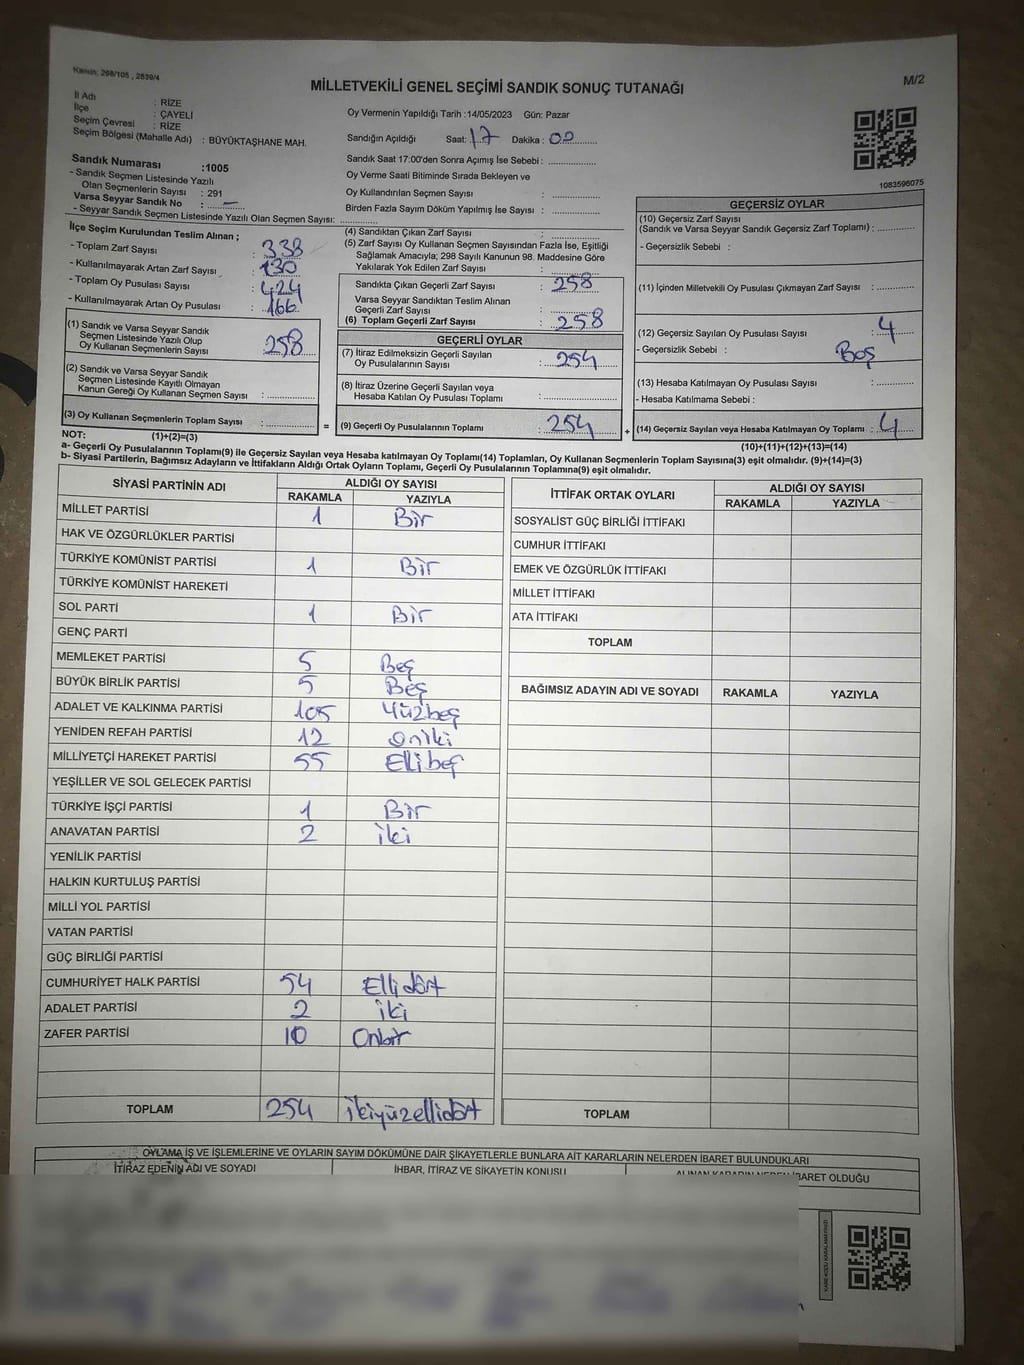 Kanun: 298/105 , 2839/4
MİLLETVEKİLİ GENEL SEÇİMİ SANDIK SONUÇ TUTANAĞI
M/2
İl Adı : RİZE
İlçe : ÇAYELİ
Seçim Çevresi : RİZE
Seçim Bölgesi (Mahalle Adı) : BÜYÜKTAŞHANE MAH.
Sandık Numarası :1005
- Sandık Seçmen Listesinde Yazılı
Olan Seçmenlerin Sayısı : 291
Varsa Seyyar Sandık No : -
- Seyyar Sandık Seçmen Listesinde Yazılı Olan Seçmen Sayısı:
Oy Vermenin Yapıldığı Tarih :14/05/2023 Gün: Pazar
Sandığın Açıldığı Saat: 17 Dakika : 00
Sandık Saat 17:00'den Sonra Açımış İse Sebebi :
Oy Verme Saati Bitiminde Sırada Bekleyen ve
Oy Kullandırılan Seçmen Sayısı :
Birden Fazla Sayım Döküm Yapılmış İse Sayısı :
1083596075
İlçe Seçim Kurulundan Teslim Alınan ;
- Toplam Zarf Sayısı : 338
- Kullanılmayarak Artan Zarf Sayısı : 130
- Toplam Oy Pusulası Sayısı : 424
- Kullanılmayarak Artan Oy Pusulası : 166
(1) Sandık ve Varsa Seyyar Sandık
Seçmen Listesinde Yazılı Olup
Oy Kullanan Seçmenlerin Sayısı : 258
(2) Sandık ve Varsa Seyyar Sandık
Seçmen Listesinde Kayıtlı Olmayan
Kanun Gereği Oy Kullanan Seçmen Sayısı :
(3) Oy Kullanan Seçmenlerin Toplam Sayısı :
(1)+(2)=(3)
(4) Sandıktan Çıkan Zarf Sayısı :
(5) Zarf Sayısı Oy Kullanan Seçmen Sayısından Fazla İse, Eşitliği
Sağlamak Amacıyla; 298 Sayılı Kanunun 98. Maddesine Göre
Yakılarak Yok Edilen Zarf Sayısı :
Sandıkta Çıkan Geçerli Zarf Sayısı : 258
Varsa Seyyar Sandıktan Teslim Alınan
Geçerli Zarf Sayısı :
(6) Toplam Geçerli Zarf Sayısı : 258
GEÇERLİ OYLAR
(7) İtiraz Edilmeksizin Geçerli Sayılan
Oy Pusulalarının Sayısı : 254
(8) İtiraz Üzerine Geçerli Sayılan veya
Hesaba Katılan Oy Pusulası Toplamı :
= (9) Geçerli Oy Pusulalarının Toplamı : 254
GEÇERSİZ OYLAR
(10) Geçersiz Zarf Sayısı
(Sandık ve Varsa Seyyar Sandık Geçersiz Zarf Toplamı) :
- Geçersizlik Sebebi :
(11) İçinden Milletvekili Oy Pusulası Çıkmayan Zarf Sayısı :
(12) Geçersiz Sayılan Oy Pusulası Sayısı : 4
- Geçersizlik Sebebi : Boş
(13) Hesaba Katılmayan Oy Pusulası Sayısı :
- Hesaba Katılmama Sebebi :
+ (14) Geçersiz Sayılan veya Hesaba Katılmayan Oy Toplamı : 4
(10)+(11)+(12)+(13)=(14)
NOT:
a- Geçerli Oy Pusulalarının Toplamı(9) ile Geçersiz Sayılan veya Hesaba katılmayan Oy Toplamı(14) Toplamları, Oy Kullanan Seçmenlerin Toplam Sayısına(3) eşit olmalıdır. (9)+(14)=(3)
b- Siyasi Partilerin, Bağımsız Adayların ve İttifakların Aldığı Ortak Oyların Toplamı, Geçerli Oy Pusulalarının Toplamına(9) eşit olmalıdır.
SİYASİ PARTİNİN ADI ALDIĞI OY SAYISI
RAKAMLA YAZIYLA
MİLLET PARTİSİ 1 Bir
HAK VE ÖZGÜRLÜKLER PARTİSİ
TÜRKİYE KOMÜNİST PARTİSİ 1 Bir
TÜRKİYE KOMÜNİST HAREKETİ
SOL PARTİ 1 Bir
GENÇ PARTİ
MEMLEKET PARTİSİ 5 Beş
BÜYÜK BİRLİK PARTİSİ 5 Beş
ADALET VE KALKINMA PARTİSİ 105 Yüzbeş
YENİDEN REFAH PARTİSİ 12 Oniki
MİLLİYETÇİ HAREKET PARTİSİ 55 Ellibeş
YEŞİLLER VE SOL GELECEK PARTİSİ
TÜRKİYE İŞÇİ PARTİSİ 1 Bir
ANAVATAN PARTİSİ 2 iki
YENİLİK PARTİSİ
HALKIN KURTULUŞ PARTİSİ
MİLLİ YOL PARTİSİ
VATAN PARTİSİ
GÜÇ BİRLİĞİ PARTİSİ
CUMHURİYET HALK PARTİSİ 54 Ellidört
ADALET PARTİSİ 2 iki
ZAFER PARTİSİ 10 Onbir
TOPLAM 254 ikiyüzellidört
İTTİFAK ORTAK OYLARI ALDIĞI OY SAYISI
RAKAMLA YAZIYLA
SOSYALİST GÜÇ BİRLİĞİ İTTİFAKI
CUMHUR İTTİFAKI
EMEK VE ÖZGÜRLÜK İTTİFAKI
MİLLET İTTİFAKI
ATA İTTİFAKI
TOPLAM
BAĞIMSIZ ADAYIN ADI VE SOYADI RAKAMLA YAZIYLA
TOPLAM
OYLAMA İŞ VE İŞLEMLERİNE VE OYLARIN SAYIM DÖKÜMÜNE DAİR ŞİKAYETLERLE BUNLARA AİT KARARLARIN NELERDEN İBARET BULUNDUKLARI
İTİRAZ EDENİN ADI VE SOYADI İHBAR, İTİRAZ VE ŞİKAYETİN KONUSU ALINAN KARARIN NEDEN İBARET OLDUĞU